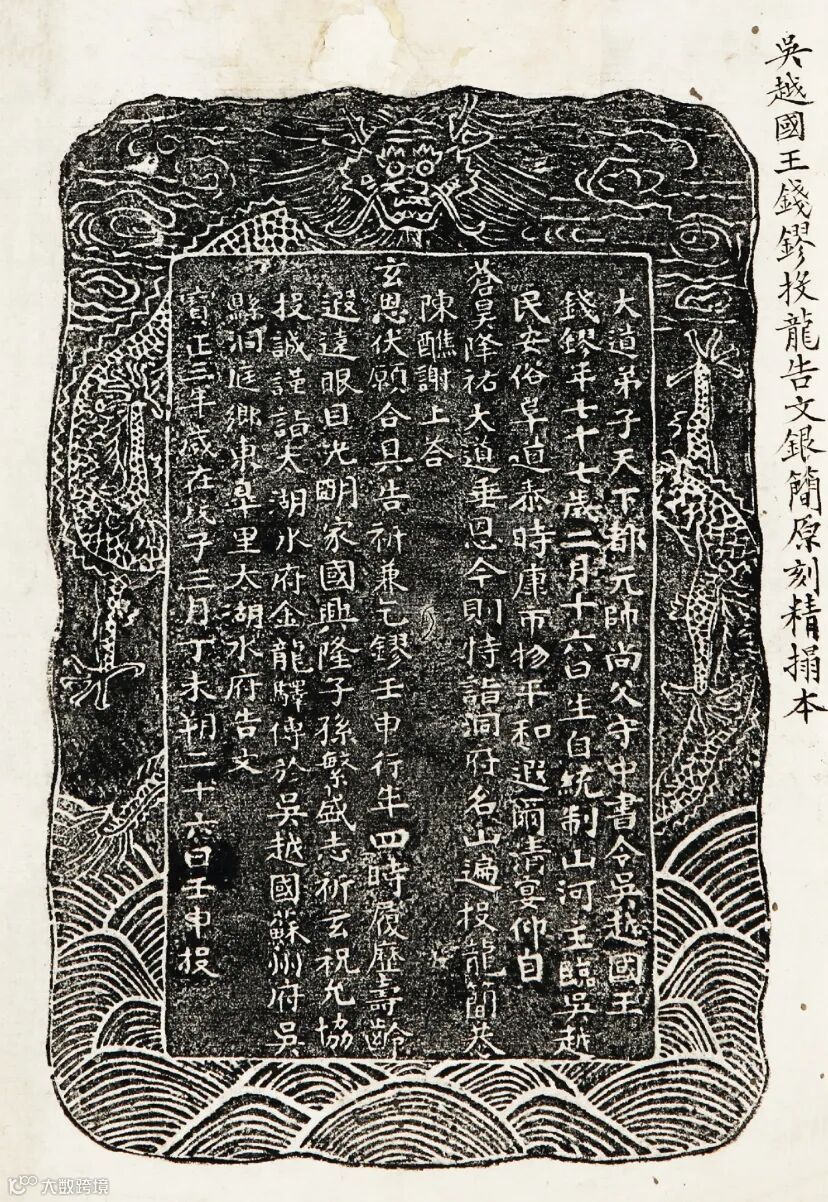 吳越國王錢鏐投龍告文銀簡原刻精搨本
大道弟子天下都元帥尚父守中書令吳越國王
錢鏐年七十七歲二月十六日生自統制山河主臨吳越
民安俗阜道泰時康市物平和遐爾清宴仰自
蒼昊降祐大道垂恩今則特詣洞府名山遍投龍簡恭
陳醮謝上荅
玄恩伏願合具告祈兼乞鏐壬申行年四時履歷壽齡
遐遠眼目光明家國興隆子孫繁盛志祈玄祝允協
投誠謹詣太湖水府金龍驛傳於吳越國蘇州府吳
縣洞庭鄉東皋里太湖水府告文
寶正三年歲在戊子三月丁未朔二十六日壬申投
大数跨境